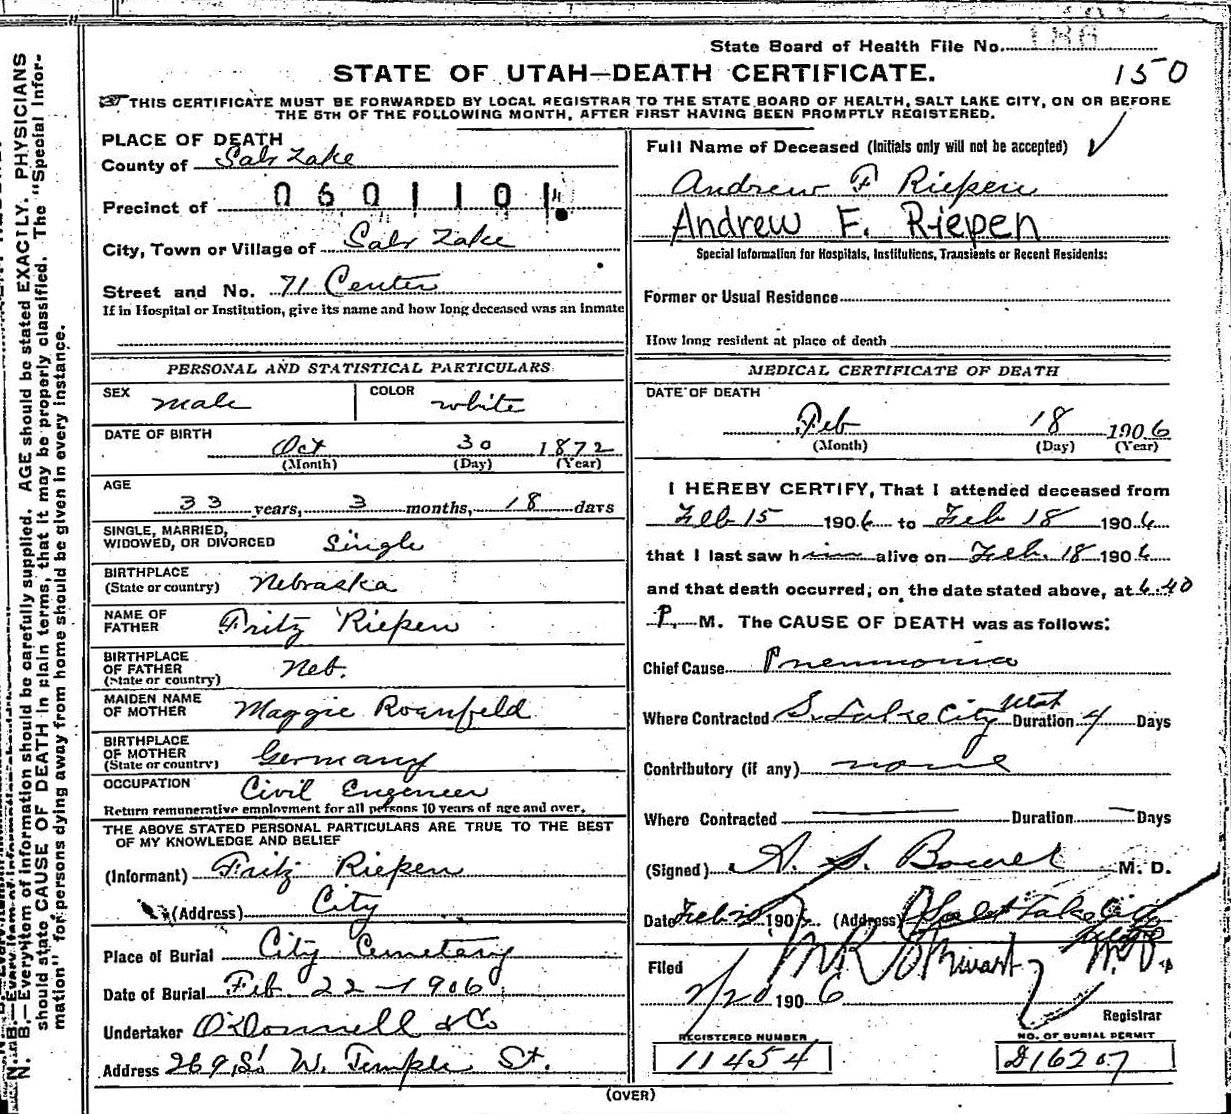 State Board of Health File No. 186
150
STATE OF UTAH—DEATH CERTIFICATE.
THIS CERTIFICATE MUST BE FORWARDED BY LOCAL REGISTRAR TO THE STATE BOARD OF HEALTH, SALT LAKE CITY, ON OR BEFORE
THE 5TH OF THE FOLLOWING MONTH, AFTER FIRST HAVING BEEN PROMPTLY REGISTERED.
PLACE OF DEATH
County of Salt Lake
Precinct of 0601101
City, Town or Village of Salt Lake
Street and No. 71 Center
If in Hospital or Institution, give its name and how long deceased was an inmate
PERSONAL AND STATISTICAL PARTICULARS
SEX male COLOR white
DATE OF BIRTH Oct 30 1872
(Month) (Day) (Year)
AGE
33 years, 3 months, 18 days
SINGLE, MARRIED,
WIDOWED, OR DIVORCED Single
BIRTHPLACE
(State or country) Nebraska
NAME OF
FATHER Fritz Riepen
BIRTHPLACE
OF FATHER
(State or country) Neb.
MAIDEN NAME
OF MOTHER Maggie Roenfeld
BIRTHPLACE
OF MOTHER
(State or country) Germany
OCCUPATION Civil Engeneer
Return remunerative employment for all persons 10 years of age and over.
THE ABOVE STATED PERSONAL PARTICULARS ARE TRUE TO THE BEST
OF MY KNOWLEDGE AND BELIEF
(Informant) Fritz Riepen
(Address) City
Place of Burial City Cemetary
Date of Burial Feb. 22-1906
Undertaker O'Donnell & Co
Address 269 S. W. Temple St.
Full Name of Deceased (Initials only will not be accepted)
Andrew F Riepen
Andrew F. Riepen
Special Information for Hospitals, Institutions, Transients or Recent Residents:
Former or Usual Residence
How long resident at place of death
MEDICAL CERTIFICATE OF DEATH
DATE OF DEATH
Feb 18 1906
(Month) (Day) (Year)
I HEREBY CERTIFY, That I attended deceased from
Feb 15 1906 to Feb 18 1906
that I last saw him alive on Feb. 18 1906
and that death occurred, on the date stated above, at 6:40
P. M. The CAUSE OF DEATH was as follows:
Chief Cause Pneumonia
Where Contracted S. Lake City Utah Duration 4 Days
Contributory (if any) none
Where Contracted Duration Days
(Signed) A. S. M. D.
Date Feb 20 1906 (Address) Salt Lake City
Filed
2/20 1906
Registrar
REGISTERED NUMBER
11454
NO. OF BURIAL PERMIT
D16207
(OVER)
N. B.—Every item of information should be carefully supplied. AGE should be stated EXACTLY. PHYSICIANS
should state CAUSE OF DEATH in plain terms, that it may be properly classified. The "Special Infor-
mation" for persons dying away from home should be given in every instance.